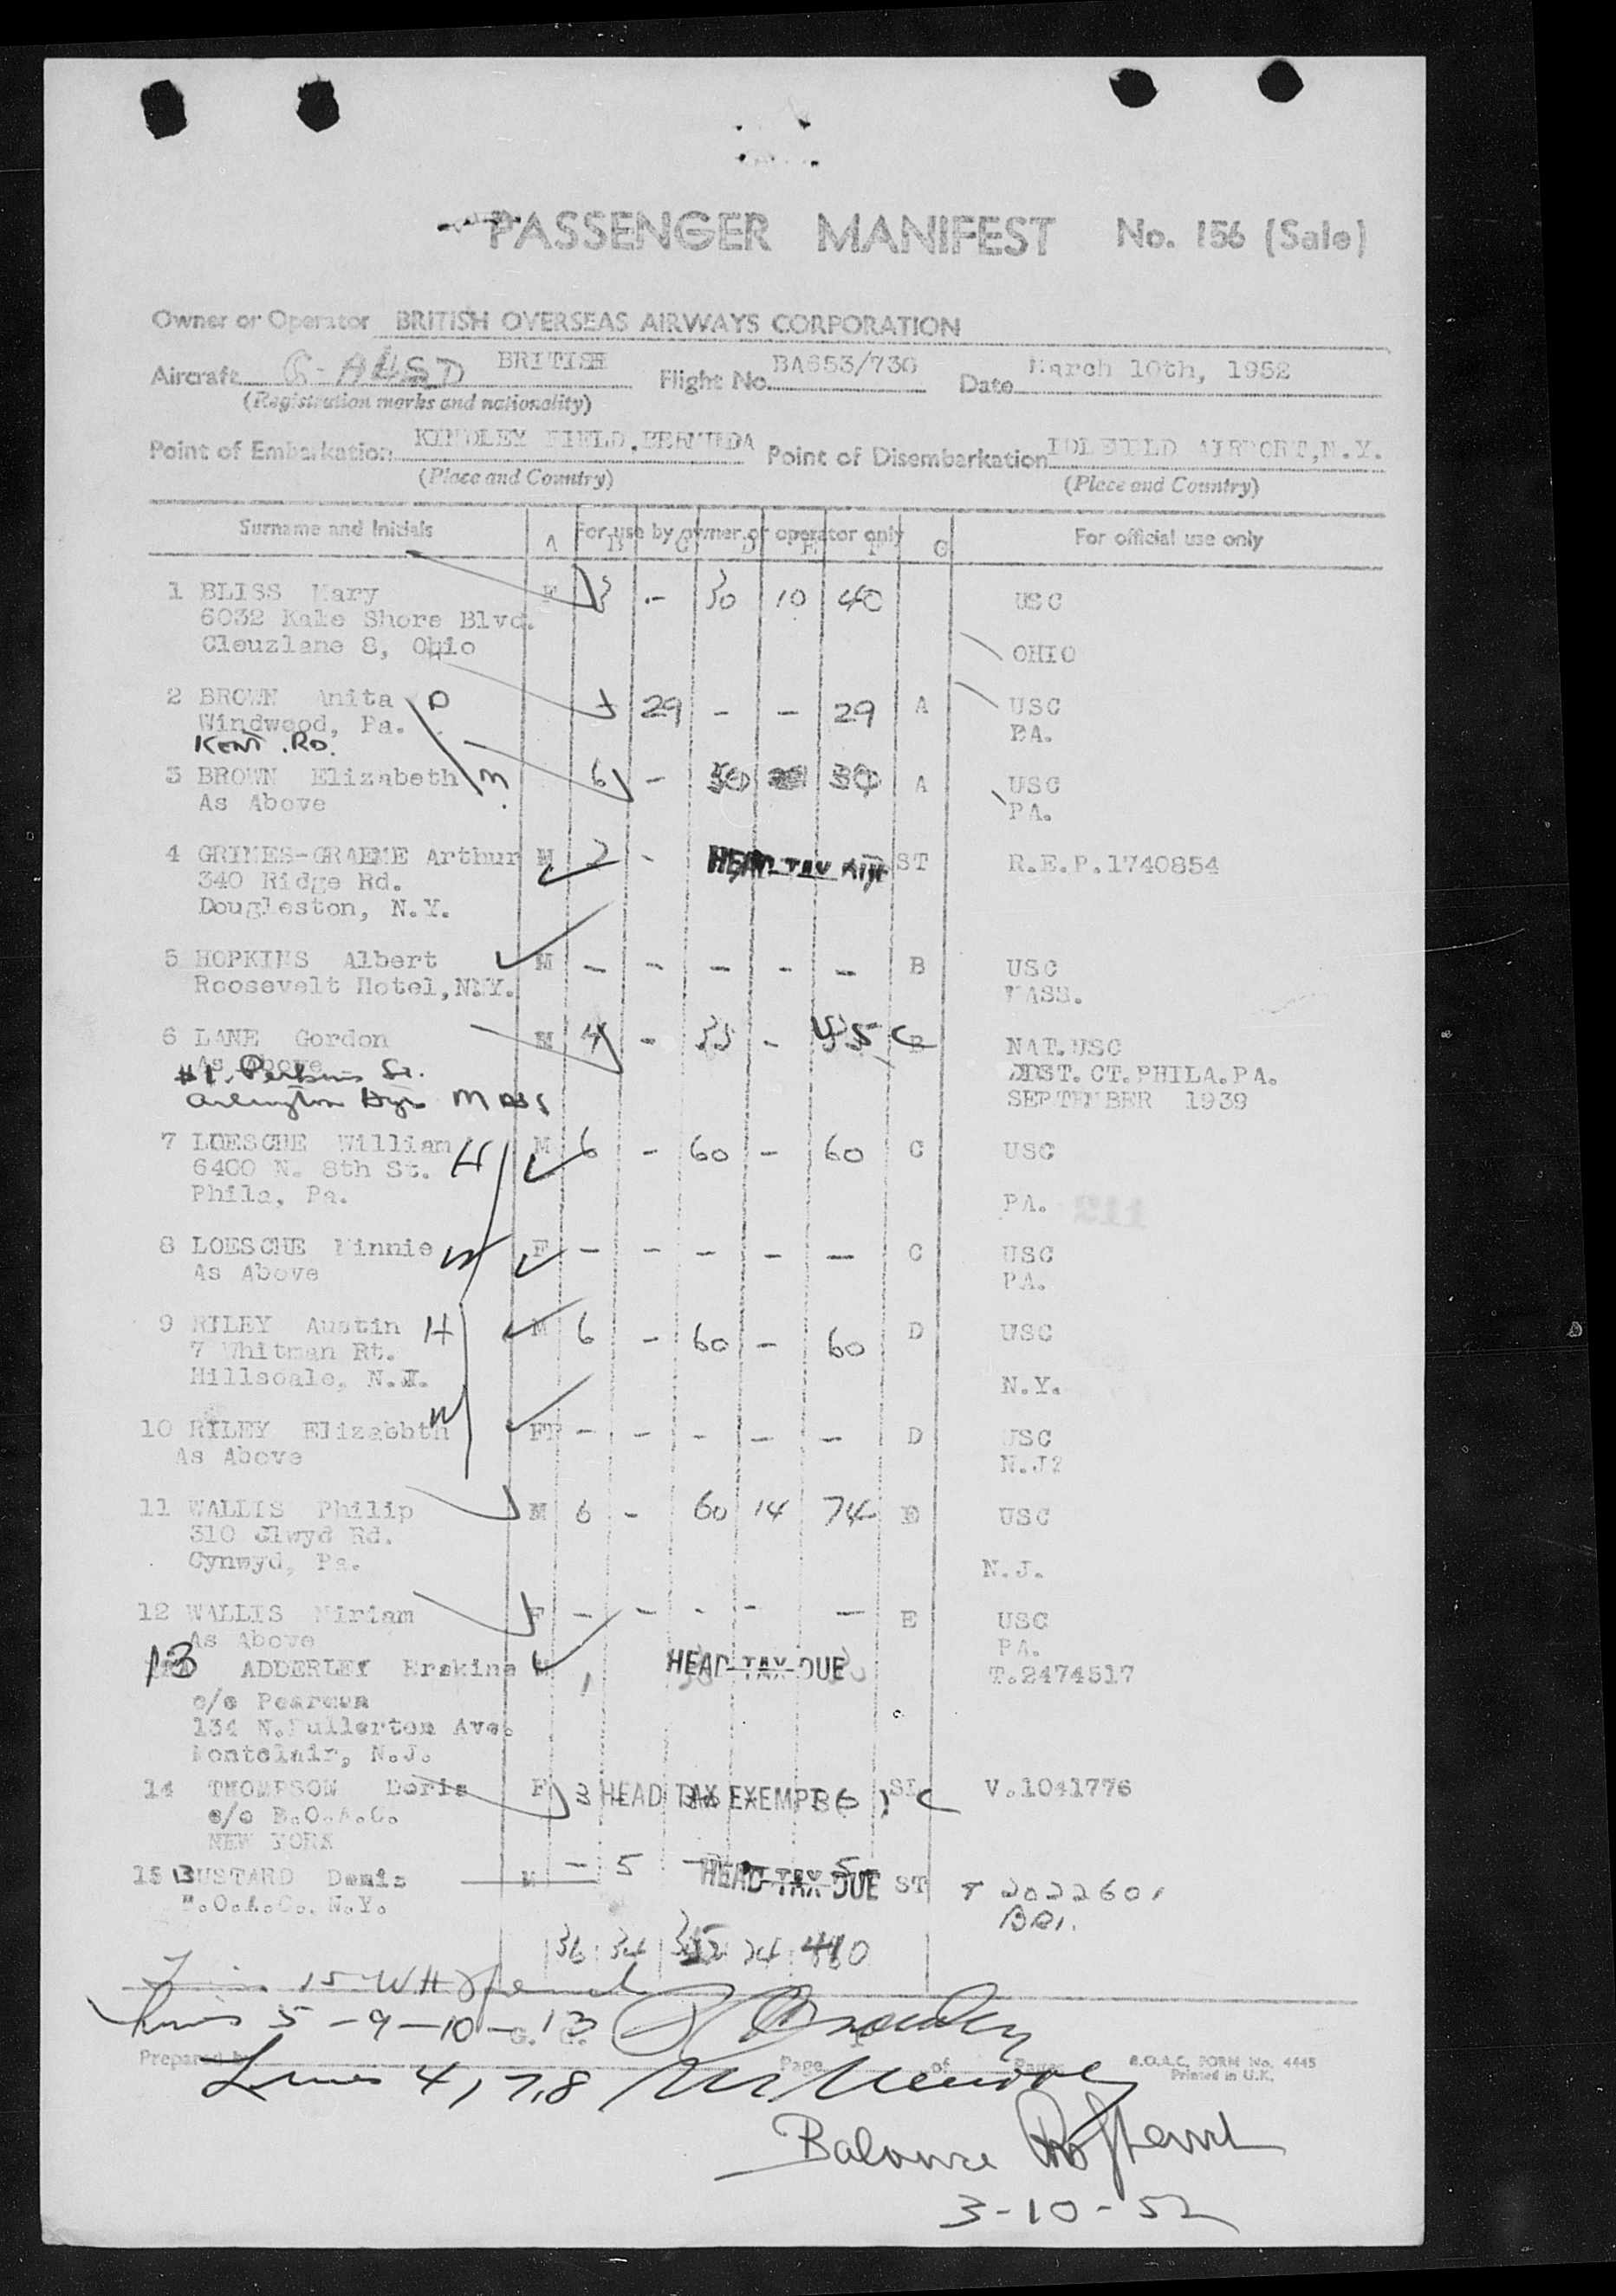 PASSENGER MANIFEST No. 156 (Sale)
Owner or Operator BRITISH OVERSEAS AIRWAYS CORPORATION
Aircraft BRITISH Flight No. BA653/730 Date March 10th, 1952
(Registration marks and nationality)
Point of Embarkation KINDLEY FIELD, BERMUDA Point of Disembarkation IDLEWILD AIRPORT, N.Y.
(Place and Country) (Place and Country)
Surname and Initials For use by owner or operator only For official use only
A B C D E F G
1 BLISS Mary F 3 - 30 10 40 USC
6032 Kale Shore Blvd.
Cleuzlane 8, Ohio OHIO
2 BROWN Anita D 29 - - 29 A USC
Windwood, Pa. PA.
KENT RD.
3 BROWN Elizabeth M 6 - A USC
As Above PA.
4 GRIMES-GRAEME Arthur M 2 - HEAD TAX ST R.E.P.1740854
340 Ridge Rd.
Dougleston, N.Y.
5 HOPKINS Albert M - - - - - B USC
Roosevelt Hotel, N.Y. MASS.
6 LANE Gordon M 4 - 35 - C NAT.USC
As Above DIST. CT. PHILA. PA.
#1. Perkins St. SEPTEMBER 1939
Arlington Hgts Mass
7 LOESCHE William H M 6 - 60 - 60 C USC
6400 N. 8th St.
Phila, Pa. PA.
8 LOESCHE Minnie W F - - - - - C USC
As Above PA.
9 RILEY Austin H M 6 - 60 - 60 D USC
7 Whitman Rt.
Hillsdale, N.J. N.Y.
10 RILEY Elizabbth W F - - - - - D USC
As Above N.J?
11 WALLIS Philip M 6 - 60 14 74 E USC
310 Clwyd Rd.
Cynwyd, Pa. N.J.
12 WALLIS Miriam F - - - - - E USC
As Above PA.
13 ADDERLEY Erskine M 1 HEAD TAX DUE T.2474517
c/o Pearman
134 N.Fullerton Ave.
Montclair, N.J.
14 THOMPSON Doris F 3 HEAD TAX EXEMPT C V.1041776
c/o B.O.A.C.
NEW YORK
15 BUSTARD Denis M - 5 - HEAD TAX DUE ST T 2022601
B.O.A.C. N.Y. BRI.
36 34 24
15
Lines 5-9-10-13
Prepared by Page of Pages B.O.A.C. FORM No. 4445
Printed in U.K.
Lines 4, 7, 8
Balance
3-10-52